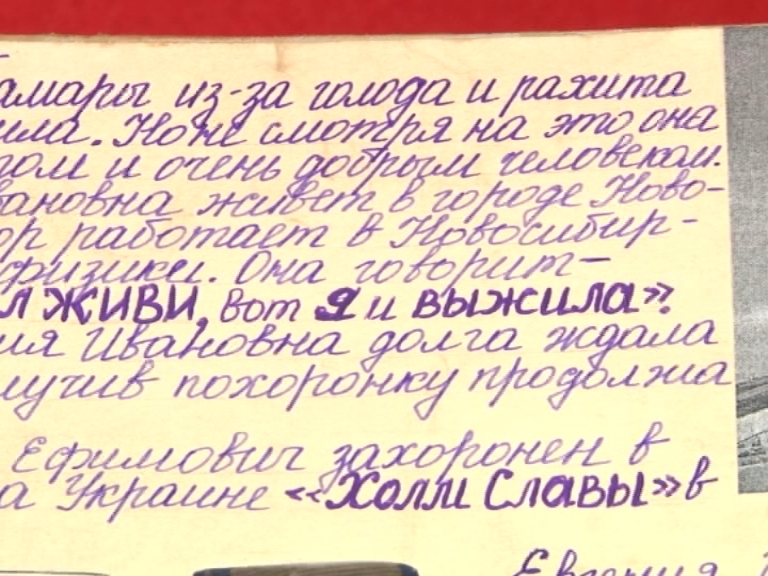 амары из-за голода и рахита
ила. Но не смотря на это она
гом и очень добрым человеком.
вановна живет в городе Ново-
ор работает в Новосибир-
физики. Она говорит-
л ЖИВИ, вот Я и ВЫЖИЛА».
ия Ивановна долга ждала
лучив похоронку продолжа
Ефимович захоронен в
а Украине «Холм Славы» в
Евгения